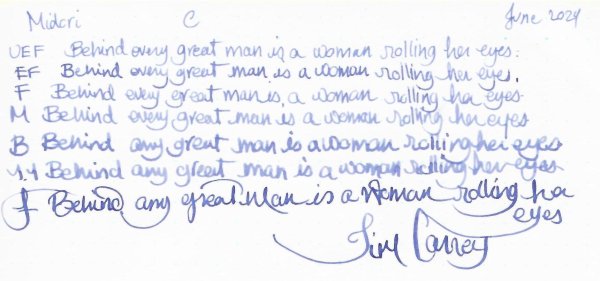 Midori C June 2024
UEF Behind every great man is a woman rolling her eyes.
EF Behind every great man is a woman rolling her eyes.
F Behind every great man is a woman rolling her eyes
M Behind every great man is a woman rolling her eyes
B Behind any great man is a woman rolling her eyes
1.4 Behind any great man is a woman rolling her eyes
f Behind any great man is a woman rolling her
eyes
Jim Carrey